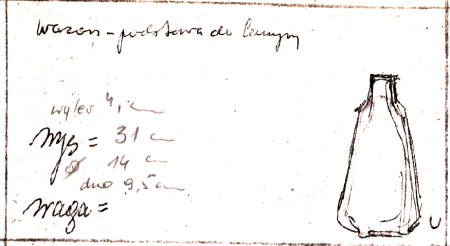 wazon - podstawa do lampy
wylew 4, cm
wys = 31 cm
ø 14 cm
dno 9,5 cm
waga =
U